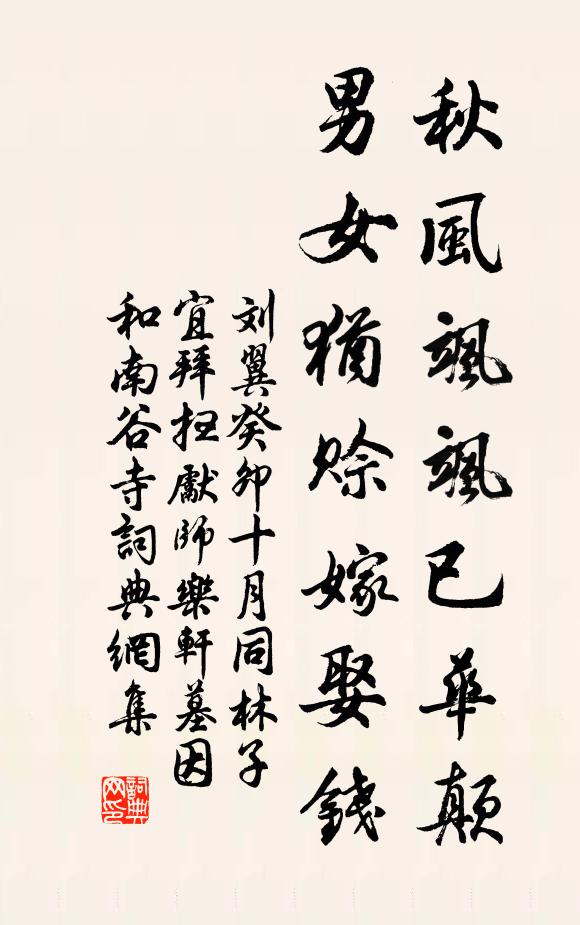 秋風颯颯已華顛
男女猶賒嫁娶錢
刘翼癸卯十月同林子
宜拜抂獻師樂軒墓因
和南谷寺詞典網集
詞典
网印